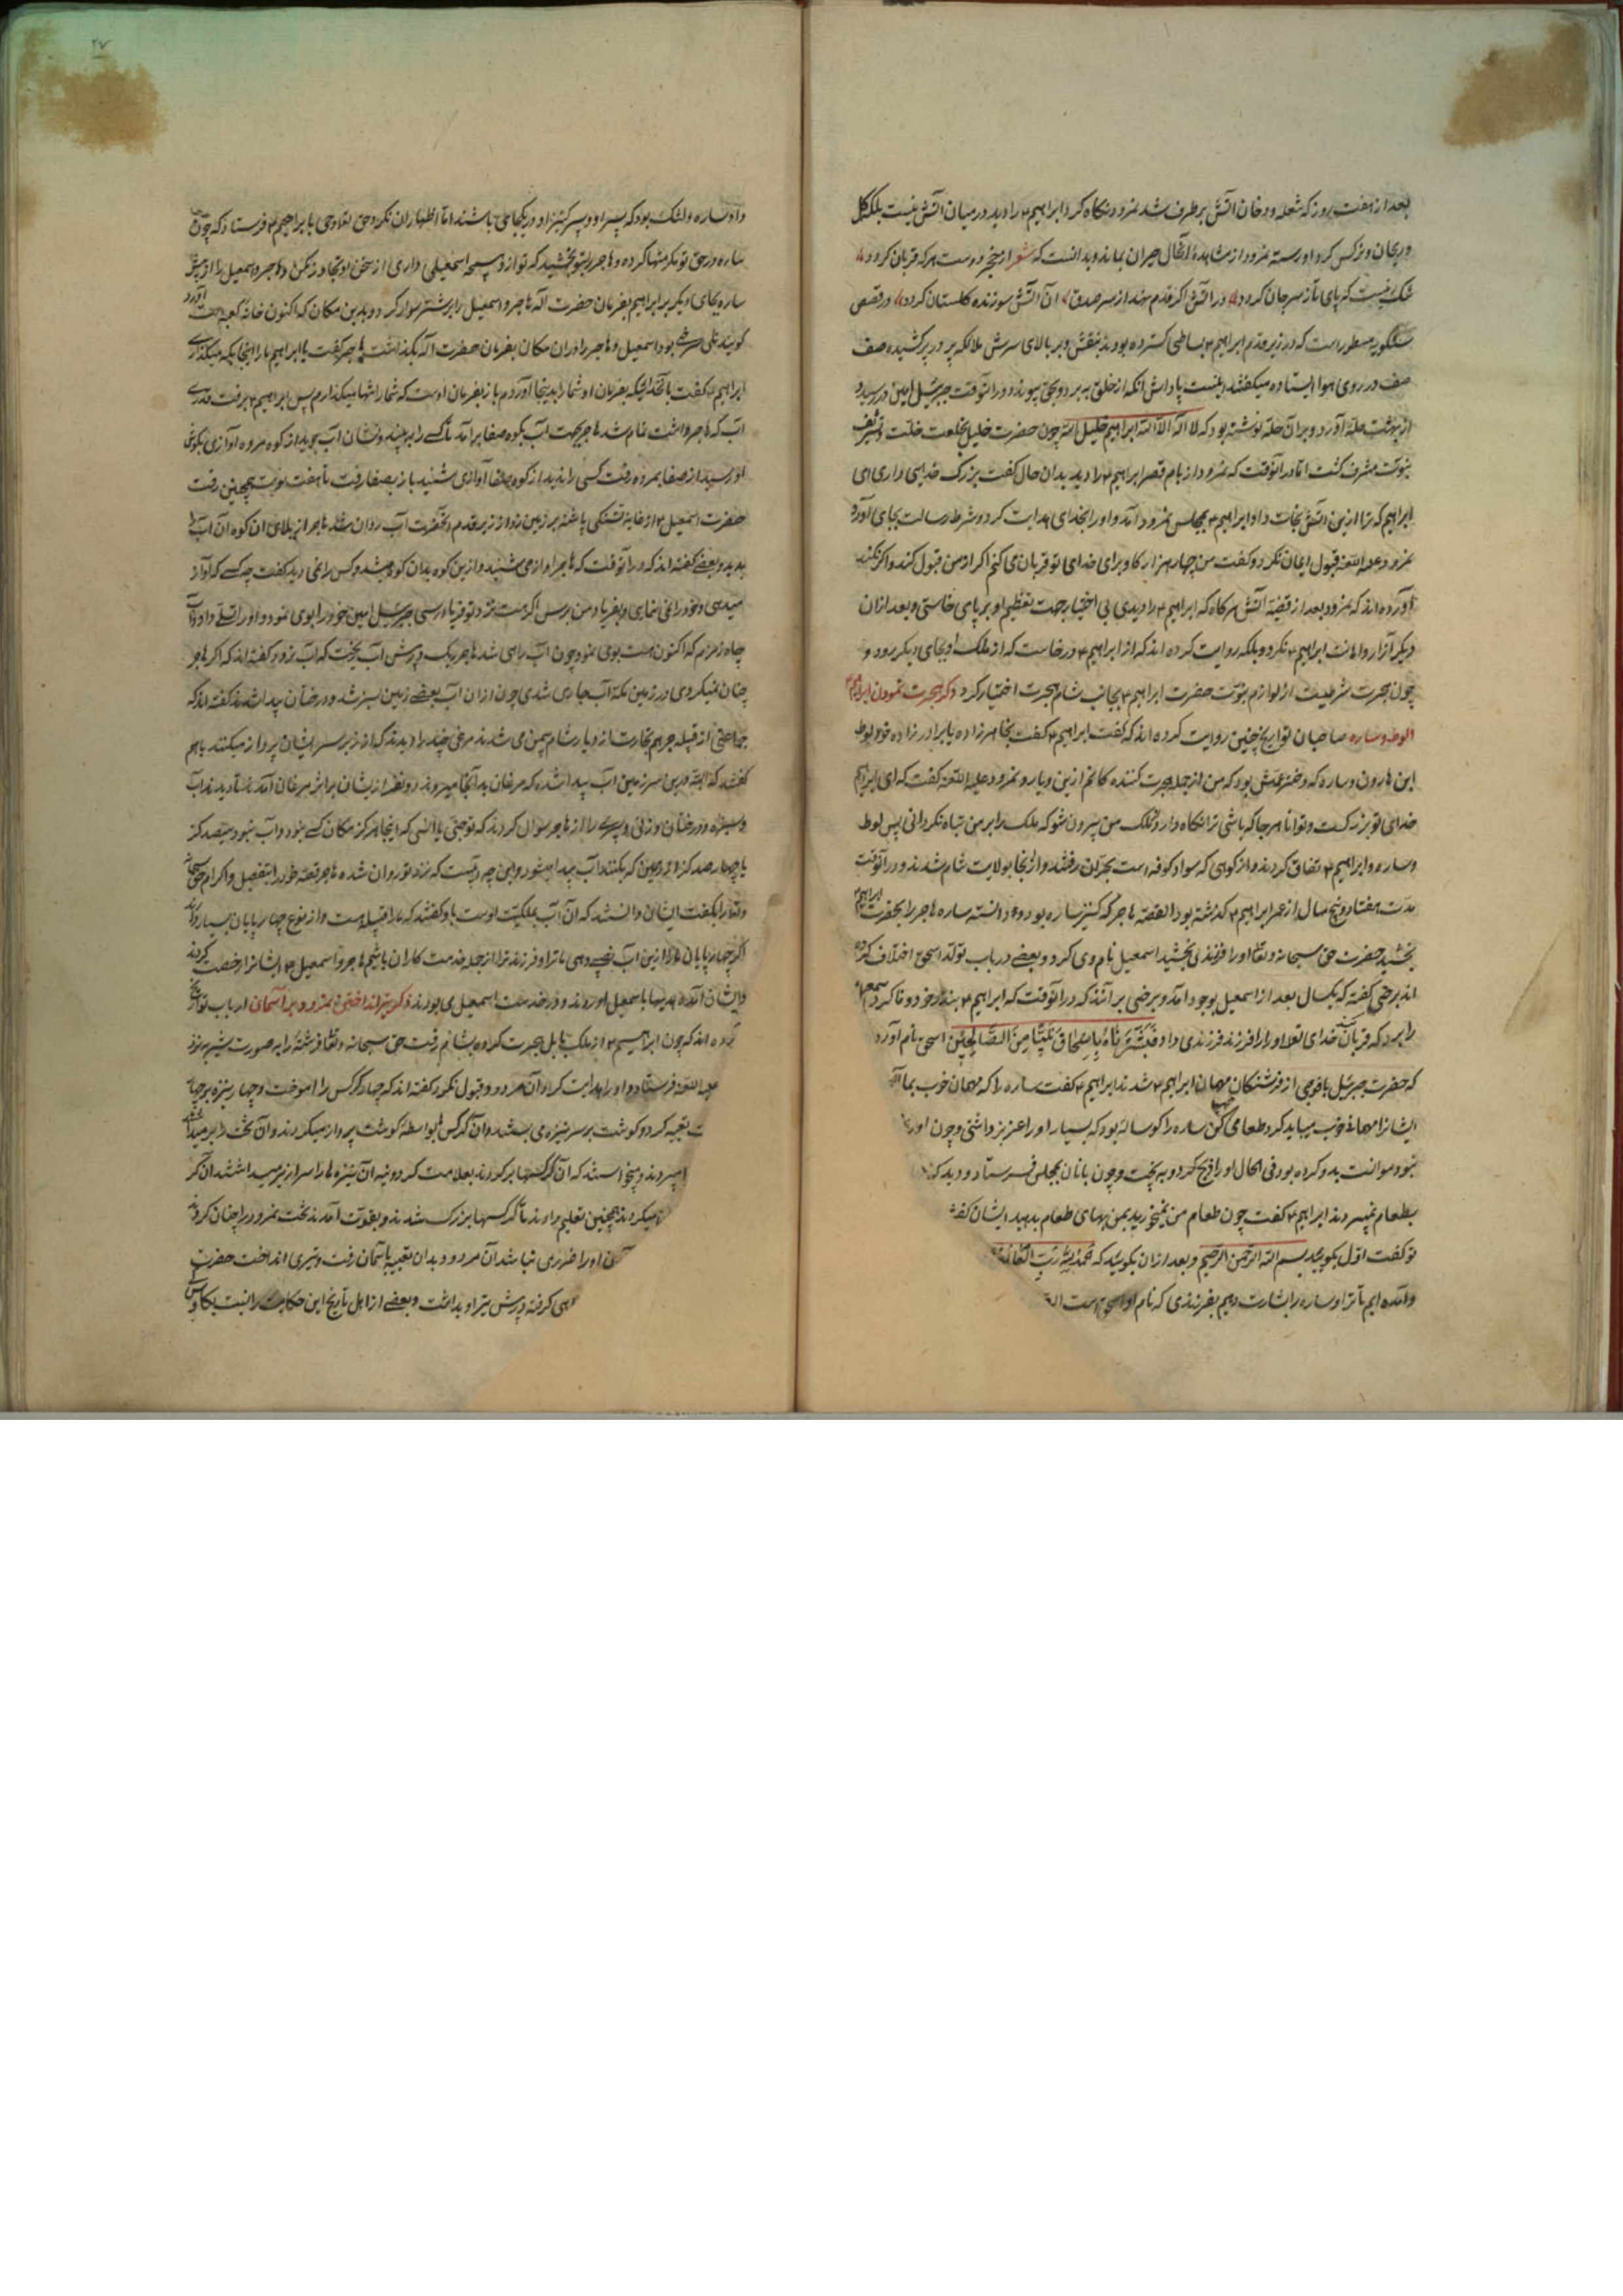 بعد از هفت روز که شعله و دخان اتش بر طرف شد نمرود نکاه کرد ابراهیم را دید در میان اتش نیست بلکه کل
و ریحان و نرکس کرد او رسته نمرود از مشاهدهٔ آنحال حیران بماند و بدانست که شعر از هیچ دوست هر که قربان کردد
شک نیست که پای تا بسر جان کردد در اتش اکر قدم نهد از سر صدق آن آتش سوزنده کلستان کردد در قصص
مسطور است که در زیر قدم ابراهیم بساطی کسترده بودند بنقش و بر بالای سرش ملائکه پر در پر کشیده صف
صف در روی هوا ایستاده میکفتند اینست پاداش انکه از خلق به برد و بحق پیوندد در آنوقت جبرئیل امین در رسید و
از بهشت حله آورد و بران حله نوشته بود که لا اله الا الله ابراهیم خلیل الله چون حضرت خلیل بخلعت خلت و تشریف
نبوت مشرف کشت اما در آنوقت که نمرود از بام قصر ابراهیم را دید بدان حال کفت بزرک خدایی داری ای
ابراهیم که ترا ازین اتش نجات داد ابراهیم بمجلس نمرود آمد و او را بخدای هدایت کرد و شرط رسالت بجای آورد
نمرود علیه اللعنه قبول ایمان نکرد و کفت من چهار هزار کاو برای خدای تو قربان می کنم اکر از من قبول کند و اکر نکند
آورده اند که نمرود بعد از قضیه آتش هر کاه که ابراهیم را دیدی بی اختیار جهت تعظیم او بر پای خاستی و بعد ازان
دیکر آزار و اهانت ابراهیم نکرد و بلکه روایت کرده اند که از ابراهیم درخواست که از ملک او بجای دیکر رود و
چون هجرت شرطیست از لوازم نبوت حضرت ابراهیم بجانب شام هجرت اختیار کرد ذکر هجرت نمودن ابراهیم
لوط و ساره صاحبان تواریخ چنین روایت کرده اند که کفت ابراهیم کفت بخاهرزاده یا برادرزاده خود لوط
ابن هارون و ساره که دختر عمش بود که من از جمله هجرت کننده کانم ازین دیار و نمرود علیه اللعنه کفت که ای ابراهیم
خدای تو بزرکست و توانا هر جا که باشی ترا نکاه دارد از ملک من بیرون شو که ملک را بر من تباه نکردانی پس لوط
و ساره و ابراهیم اتفاق کردند و از کوهی که سواد کوفه است بحران رفتند و از آنجا بولایت شام شدند و در آنوقت
مدت هفتاد و پنج سال از عمر ابراهیم کذشته بود القصه هاجر که کنیز ساره بود دانسته ساره هاجر را بحضرت ابراهیم
بخشید حضرت حق سبحانه و تعالی او را فرزندی بخشید اسمعیل نام وی کرد و بعضی در باب تولد اسحق اختلاف کرده
اند برخی کفته که یکسال بعد از اسمعیل بوجود آمد و برخی بر آنند که در آنوقت که ابراهیم بنذر خود وفا کرد و اسمعیل
را برد که قربان کند خدای تعالی او را فرزند فرزندی داد فَبَشَّرْنَاهُ بِإِسْحَاقَ نَبِيًّا مِنَ الصَّالِحِينَ اسحق نام آورد
که حضرت جبرئیل با فوجی از فرشتکان مهمان ابراهیم شدند ابراهیم کفت ساره را که مهمان خوب بما
ایشانرا مهمانی خوب میباید کرد طعامی کن ساره را کوساله بود که بسیار او را عزیز داشتی و چون او را
نبود موانست بدو کرده بود فی الحال او را ذبح کرد و به پخت و چون با نان بمجلس فرستاد و دید که
بطعام نمیبردند ابراهیم کفت چون طعام من نمیخورید بمن بهای طعام بدهید ایشان کفتند
تو کفت اول بکویید بسم الله الرحمن الرحیم و بعد ازان بکویید که الحمد لله رب العالمین
و آمده ایم تا ترا و ساره را بشارت دهیم بفرزندی که نام او اسحق است
داد ساره را رشک بود که پسر او و پسر کنیز او در یکجا می باشند اما اظهار ان نکرد حق تعالی وحی بابراهیم فرستاد که چون
ساره در حق تو مکرمتها کرده و هاجر را بتو بخشید که تو از و پسر چو اسمعیلی داری از سخن او تجاوز مکن و هاجر و اسمعیل را از پیش
ساره بجای دیکر بر ابراهیم بفرمان حضرت اله هاجر و اسمعیل را بر شتر سوار کرد و بدین مکان که اکنون خانه کعبه است آورد
کویند تلی سرخ بود اسمعیل و هاجر را در ان مکان بفرمان حضرت اله بکذاشت هاجر کفت یا ابراهیم ما را اینجا بکه میکذاری
ابراهیم کفت بآنخدائیکه بفرمان او شما را بدینجا آوردم باز بفرمان اوست که شما را تنها میکذارم پس ابراهیم برفت قدری
آب که هاجر داشت تمام شد هاجر بجهت آب بکوه صفا بر آمد تا کسی را به بیند و نشان آب بجوید از کوه مروه آوازی بکوش
او رسید از صفا بمروه رفت کسی را ندید از کوه صفا آوازی شنید باز بصفا رفت تا هفت نوبت همچنین رفت
حضرت اسمعیل از غایت تشنکی پاشنه بر زمین زد از زیر قدم آنحضرت آب روان شد هاجر از بالای ان کوه آن آب را
بدید و بعضی کفته اند که در آنوقت که هاجر آواز می شنید و ازین کوه بدان کوه میشد و کس را نمی دید کفت چه کسی که آواز
میدهی و خود را نمی نمایی و بفریاد من برس اکر هست نزد تو فریاد رسی جبرئیل امین خود را بوی نمود و او را تسلی داد و آب
چاه زمزم که اکنون هست بوی نمود چون آب راهی شد هاجر ریک در پیش آب ریخت که آب نرود کفته اند که اکر هاجر
چنان نمیکردی در زمین مکه آب جاری شدی چون ازان آب بعضی زمین سبز شد و درختان پیدا شدند کفته اند که
جماعتی از قبیله جرهم بتجارت از دیار شام بیمن می شدند مرغی چند را دیدند که از زبر سر ایشان پرواز میکنند باهم
کفتند که البته درین سرزمین آب پیدا شده که مرغان بدآنجا میروند دو نفر ازیشان بر اثر مرغان آمدند تا دیدند آب
و سبزه و درختان و زنی و پسری را از هاجر سوال کردند که تو جنی یا انسی که اینجا هرکز مکان کسی نبود و آب نبود سیصد کز
یا چهار صد کز از زمین که بکنند آب پیدا میشود و این چه آبیست که نزد تو روان شده هاجر قصه خود را بتفصیل و اکرام حق سبحانه
و تعالی را بکفت ایشان دانستند که آن آب بملکیت اوست باو کفتند که ما را قبیله است و از نوع چهارپایان بسیار دارند
اکر چهارپایان ما را ازین آب نصیبی دهی ما ترا و فرزند ترا از جمله خدمت کاران باشیم هاجر و اسمعیل ایشانرا رخصت کردند
و ایشان آمده هدیها باسمعیل آوردند و در خدمت اسمعیل می بودند ذکر تیر انداختن نمرود بر آسمان ارباب تواریخ
آورده اند که چون ابراهیم از ملک بابل هجرت کرده بشام رفت حق سبحانه و تعالی فرشتهٔ را به صورت بشر بنزد
علیه اللعنه فرستاد و او را هدایت کرد آن مردود قبول نکرد کفته اند که چهار کرکس را اموخت و چهار نیزه بر چهار
تعبیه کرد و کوشت بر سر نیزه می بستند و آن کرکس بواسطهٔ کوشت پرواز میکردند و آن تخت را بر میداشتند
میبردند و میخواستند که آن کرکسها بر کردند بعلامت کردونیه آن نیزه ها را سرازیر میداشتند آن کر
میکردند همچنین تعلیم دادند تا کرکسها بزرک شدند و بقوت آمدند تخت نمرود را چنان کردند
او را ضرری نباشد آن مردود بدان تعبیه بآسمان رفت و تیری انداخت حضرت
ماهی کرفته در پیش تیر او بداشت و بعضی از اهل تاریخ این حکایت را نسبت بکاوس